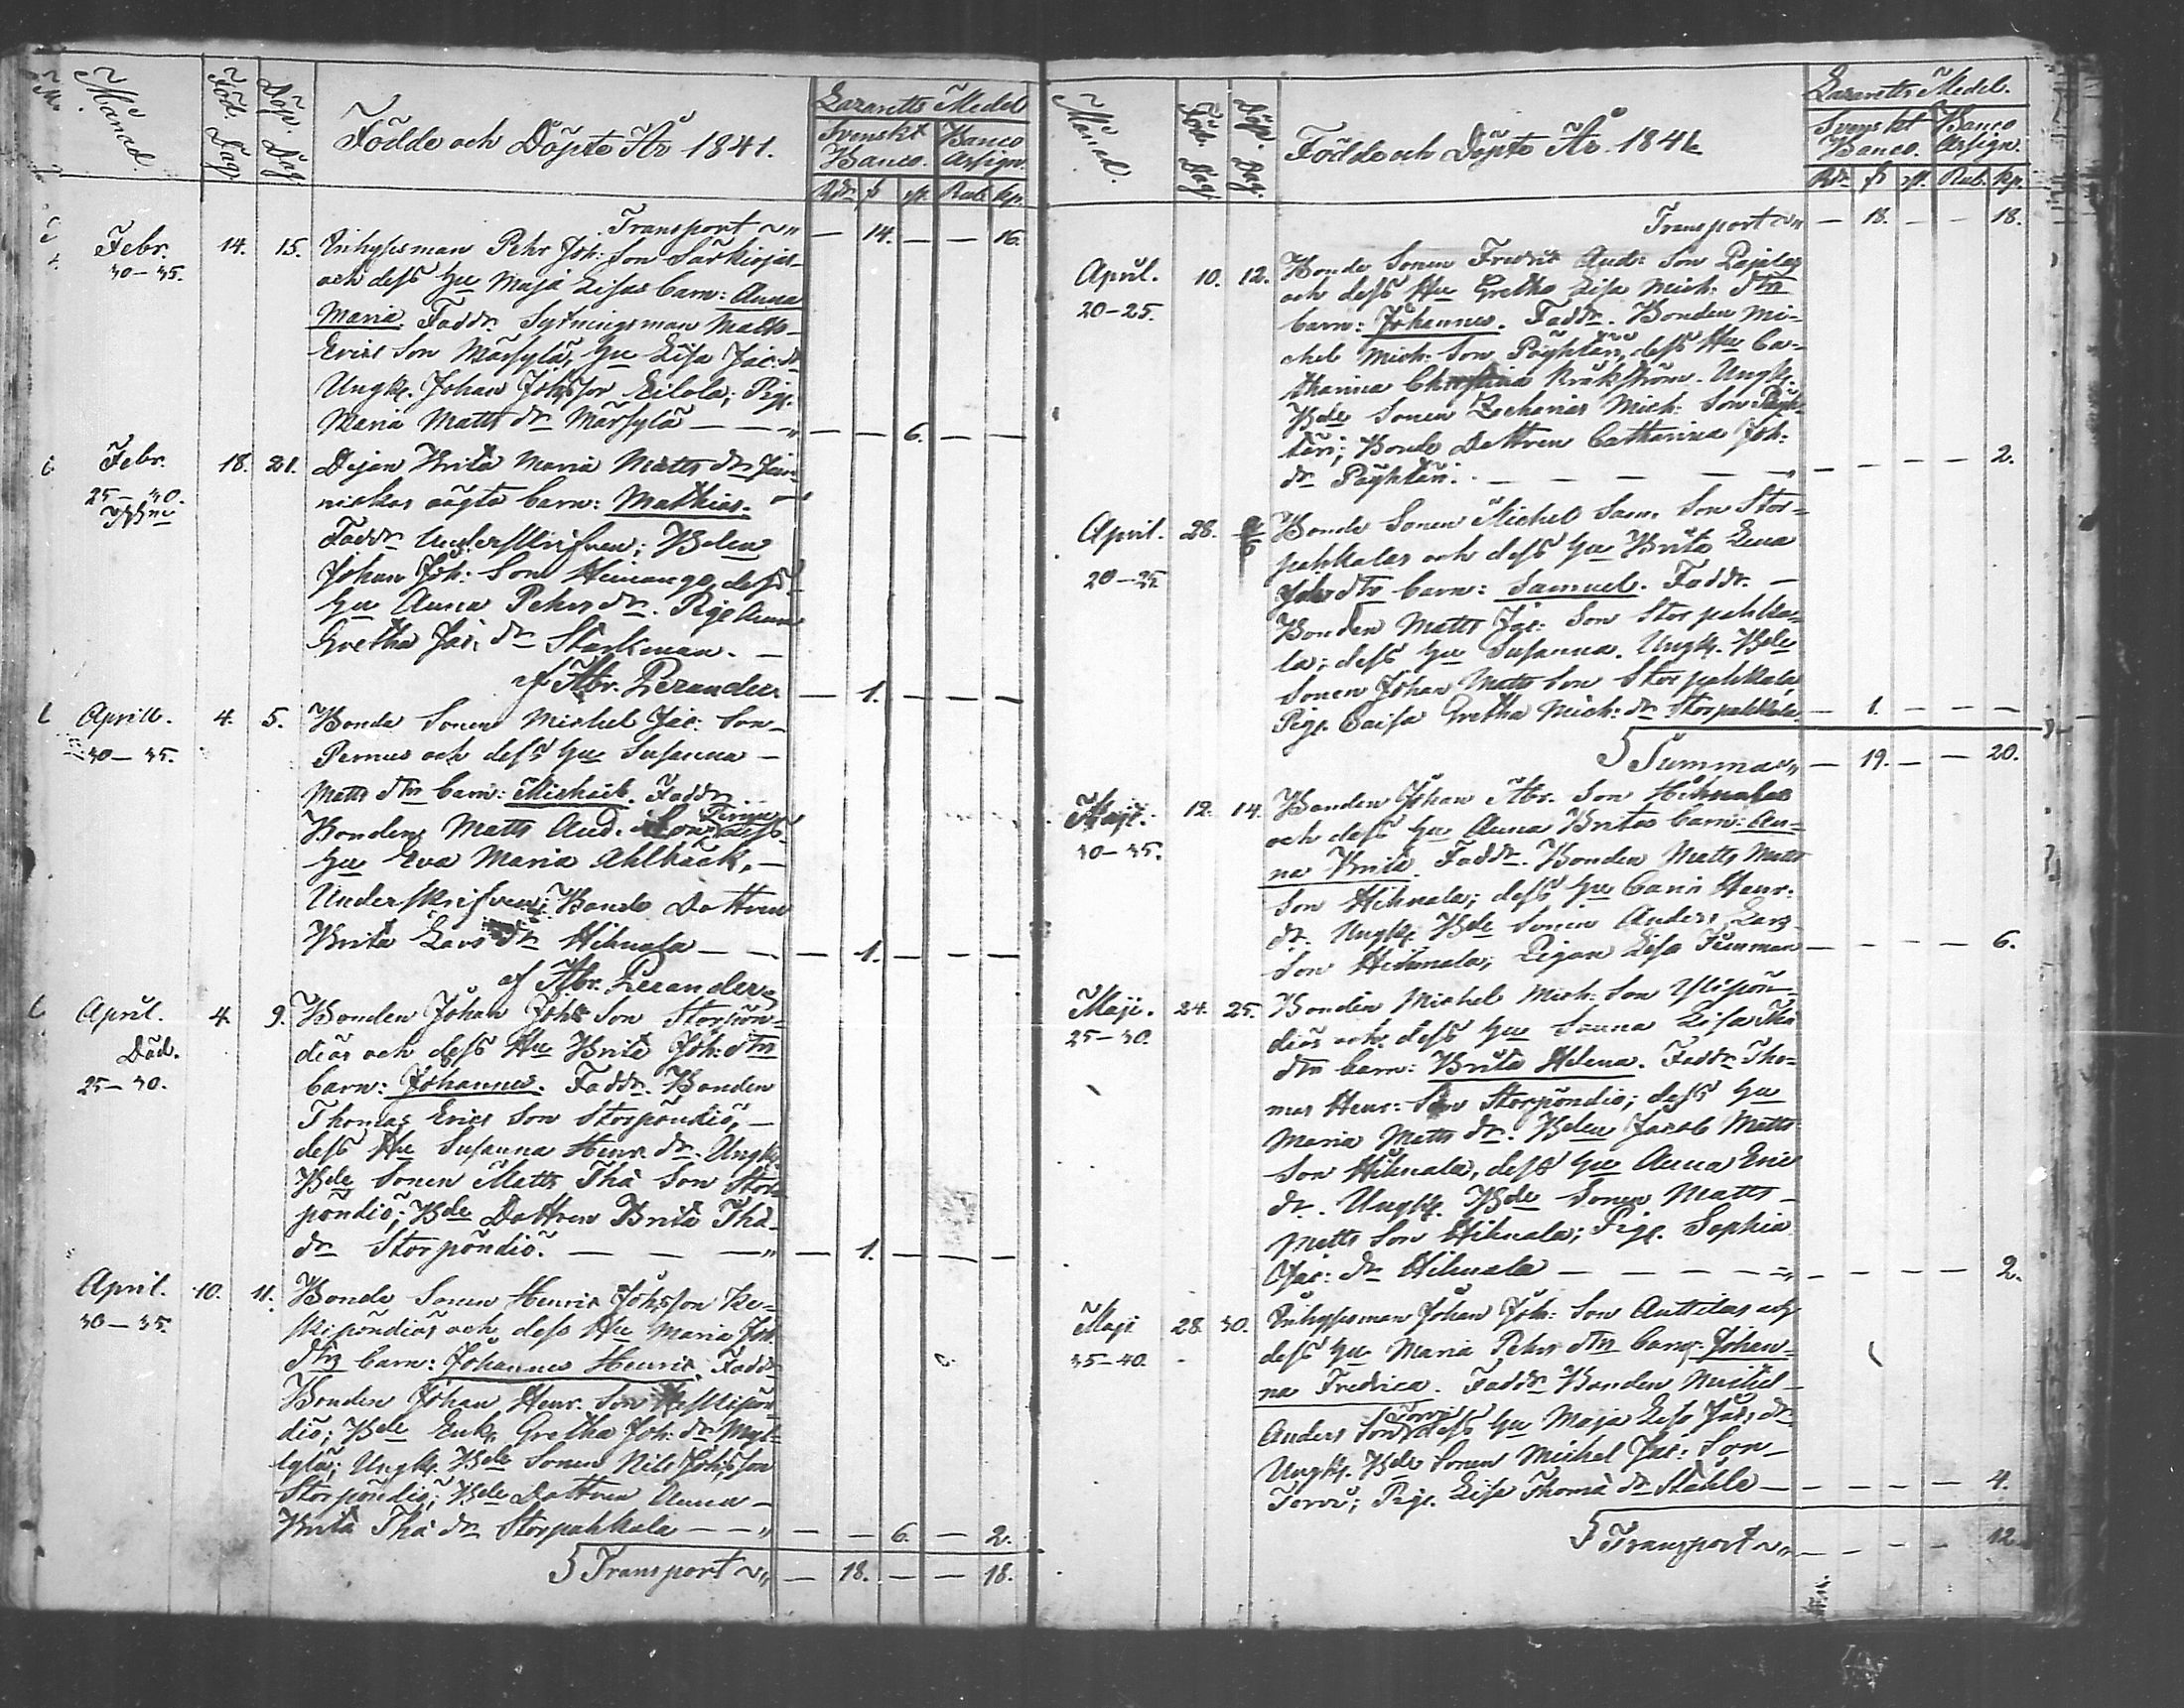 Månad.
Föd. Dag.
Döp. Dag.
Födde och Döpte År 1841.
Lazaretts Medel
Svenskt Banco.
Banco Assign.
Rdr ß rst. Rub. kp.
Transport — 14. — — 16.
Febr. 14. 15. Inhysesman Pehr Joh: Son Särkiojas
30–35. och dess Hu Maja Lisas barn: Anna
Maria. Faddr. Sytningsman Matts
Erics Son Märsylä, Hu Lisa Jac: dr
Ungk. Johan Johsson Eilola; Pig.
Maria Matts dr Märsylä — — — — 6. — —
Febr. 18. 21. Pigan Brita Maria Matts dr
25–30. oägta barn: Mathias.
Faddr Underskrifven; Bden
Johan Joh: Son Heinango, dess
Hu Anna Pehrs dr. Pig. Anna
Gretha Jac: dr Starkman. —
af Abr. Perander — 1. — — —
April. 4. 5. Bonde Sonen Michel Jac: Son
30–35. Pernus och dess Hu Susanna —
Matts dtrs barn: Michael. Faddr.
Bonden Matts And. Son Pernu, dess
Hu Eva Maria Ahlbäck, —
Underskrifven; Bonde Dottren
Brita Lars dr Hihnala — — — 1. — — —
af Abr. Perander
April. 4. 9. Bonden Johan Joh: Son Storpön-
Död. diös och dess Hu Brita Joh: dtrs
25–30. barn: Johannes. Faddr. Bonden
Thomas Erics Son Storpöndiö, —
dess Hu Susanna Henr. dr. Ungk.
Bde Sonen Matts Tha Son Stor
pöndiö; Bde Dottren Brita Tha
dr Storpöndiö. — — — — 1. — — —
April. 10. 11. Bonde Sonen Henric Johsson Ke-
30–35. skipöndiös och dess Hu Maria Joh.
dtrs barn: Johannes Henric. Faddr
Bonden Johan Henr. Son Keskipön
diö; Bde Enk. Gretha Joh: dr Myl-
lylä; Ungk. Bde Sonen Nils Johsson
Storpöndiö; Bde Dottren Anna —
Brita Tha dr Storpahkala — — — — 6. — 2.
Transport — 18. — — 18.
Månad.
Föd. Dag.
Döp. Dag.
Födde och Döpte År 1841.
Lazaretts Medel.
Svenskt Banco.
Banco Assign.
Rdr ß rst. Rub. kp.
Transport — 18. — — 18.
April. 10. 12. Bonde Sonen Fredrik And: Son
20–25. och dess Hu Gretha Lisa Mich: dtrs
barn: Johannes. Faddr. Bonden Mi-
chel Mich: Son Pöyhtäri, dess Hu Ca-
tharina Christina Kråkström. Ungk.
Bde Sonen Zacharias Mich: Son Pöyh-
täri; Bonde Dottren Catharina Joh:
dr Pöyhtäri. — — — — — — — 2.
April. 28. Bonde Sonen Michel Sam. Son Stor-
20–25. pahkalas och dess Hu Brita Lena
Joh: dtrs barn: Samuel. Faddr. —
Bonden Matts Jac: Son Storpahka-
la; dess Hu Susanna. Ungk. Bde
Sonen Johan Matts Son Storpahkala
Pig. Caisa Gretha Mich: dr Storpahkala. — 1. — — —
Summa — 19. — — 20.
Maji. 12. 14. Bonden Johan Abr. Son Hihnalas
30–35. och dess Hu Anna Britas barn: An-
na Brita. Faddr. Bonden Matts Matts
Son Hihnala; dess Hu Carin Henr:
dr. Ungk. Bde Sonen Anders Lars
Son Hihnala; Pigan Lisa Timman — — — — 6.
Maji. 24. 25. Bonden Michel Mich: Son Ylipön-
25–30. diös och dess Hu Sanna Lisa Tha
dtrs barn: Brita Helena. Faddr Tho-
mas Henr: Son Storpöndiö; dess Hu
Maria Matts dr. Bden Jacob Matts
Son Hihnala, dess Hu Anna Eric
dr. Ungk. Bde Sonen Matts —
Matts Son Hihnala; Pig. Sophia
Jac: dr Hihnala — — — — — — — — 2.
Maji 28. 30. Inhysesman Johan Joh: Son Anttilas och
35–40. dess Hu Maria Pehrs dtrs barn: Johan-
na Fredrica. Faddr Bonden Michel
Anders Son Torvi, dess Hu Maja Lisa Jac: dr
Ungk. Bde Sonen Michel Jac: Son
Torvi; Pig. Lisa Thoma dr Ståhle — — — — — 4.
Transport — — — — 12.